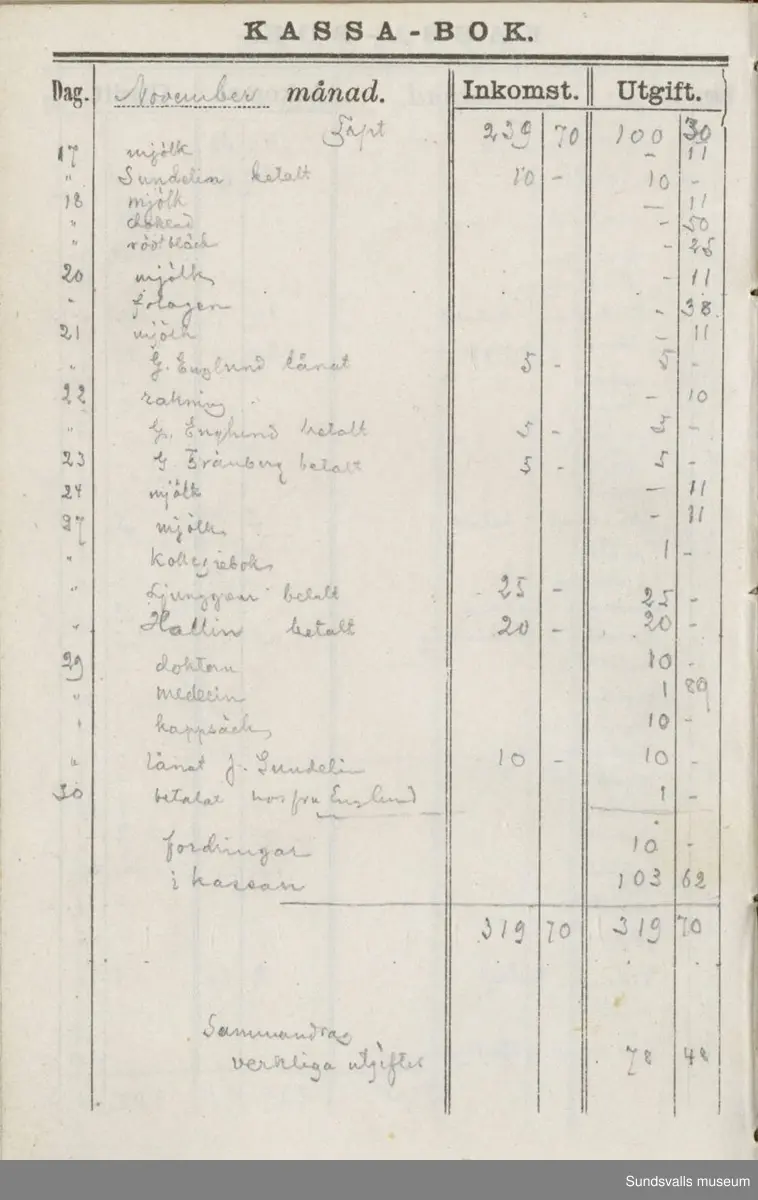 KASSA-BOK.
Dag. November månad. Inkomst. Utgift.
239 70 100 30
17 mjölk - 11
" Sundelin betalt 10 - 10 -
18 mjölk - 11
" choklad - 50
" rödt bläck - 25
20 mjölk - 11
" - 38
21 mjölk - 11
" G. Englund lånat 5 - 5 -
22 rakning - 10
" G. Englund betalt 5 - 5 -
23 G. Frånberg betalt 5 - 5 -
24 mjölk - 11
27 mjölk - 11
" Kollegiebok 1 -
" Ljunggren betalt 25 - 25 -
" Hallin betalt 20 - 20 -
29 doktorn 10 -
" medecin 1 89
" kappsäck 10 -
" lånat f. Sundelin 10 - 10 -
30 betalat hos fru Englund 1 -
fordringar 10 -
i kassan 103 62
319 70 319 70
Sammandrag
verkliga utgifter 78 48
Sundsvalls museum